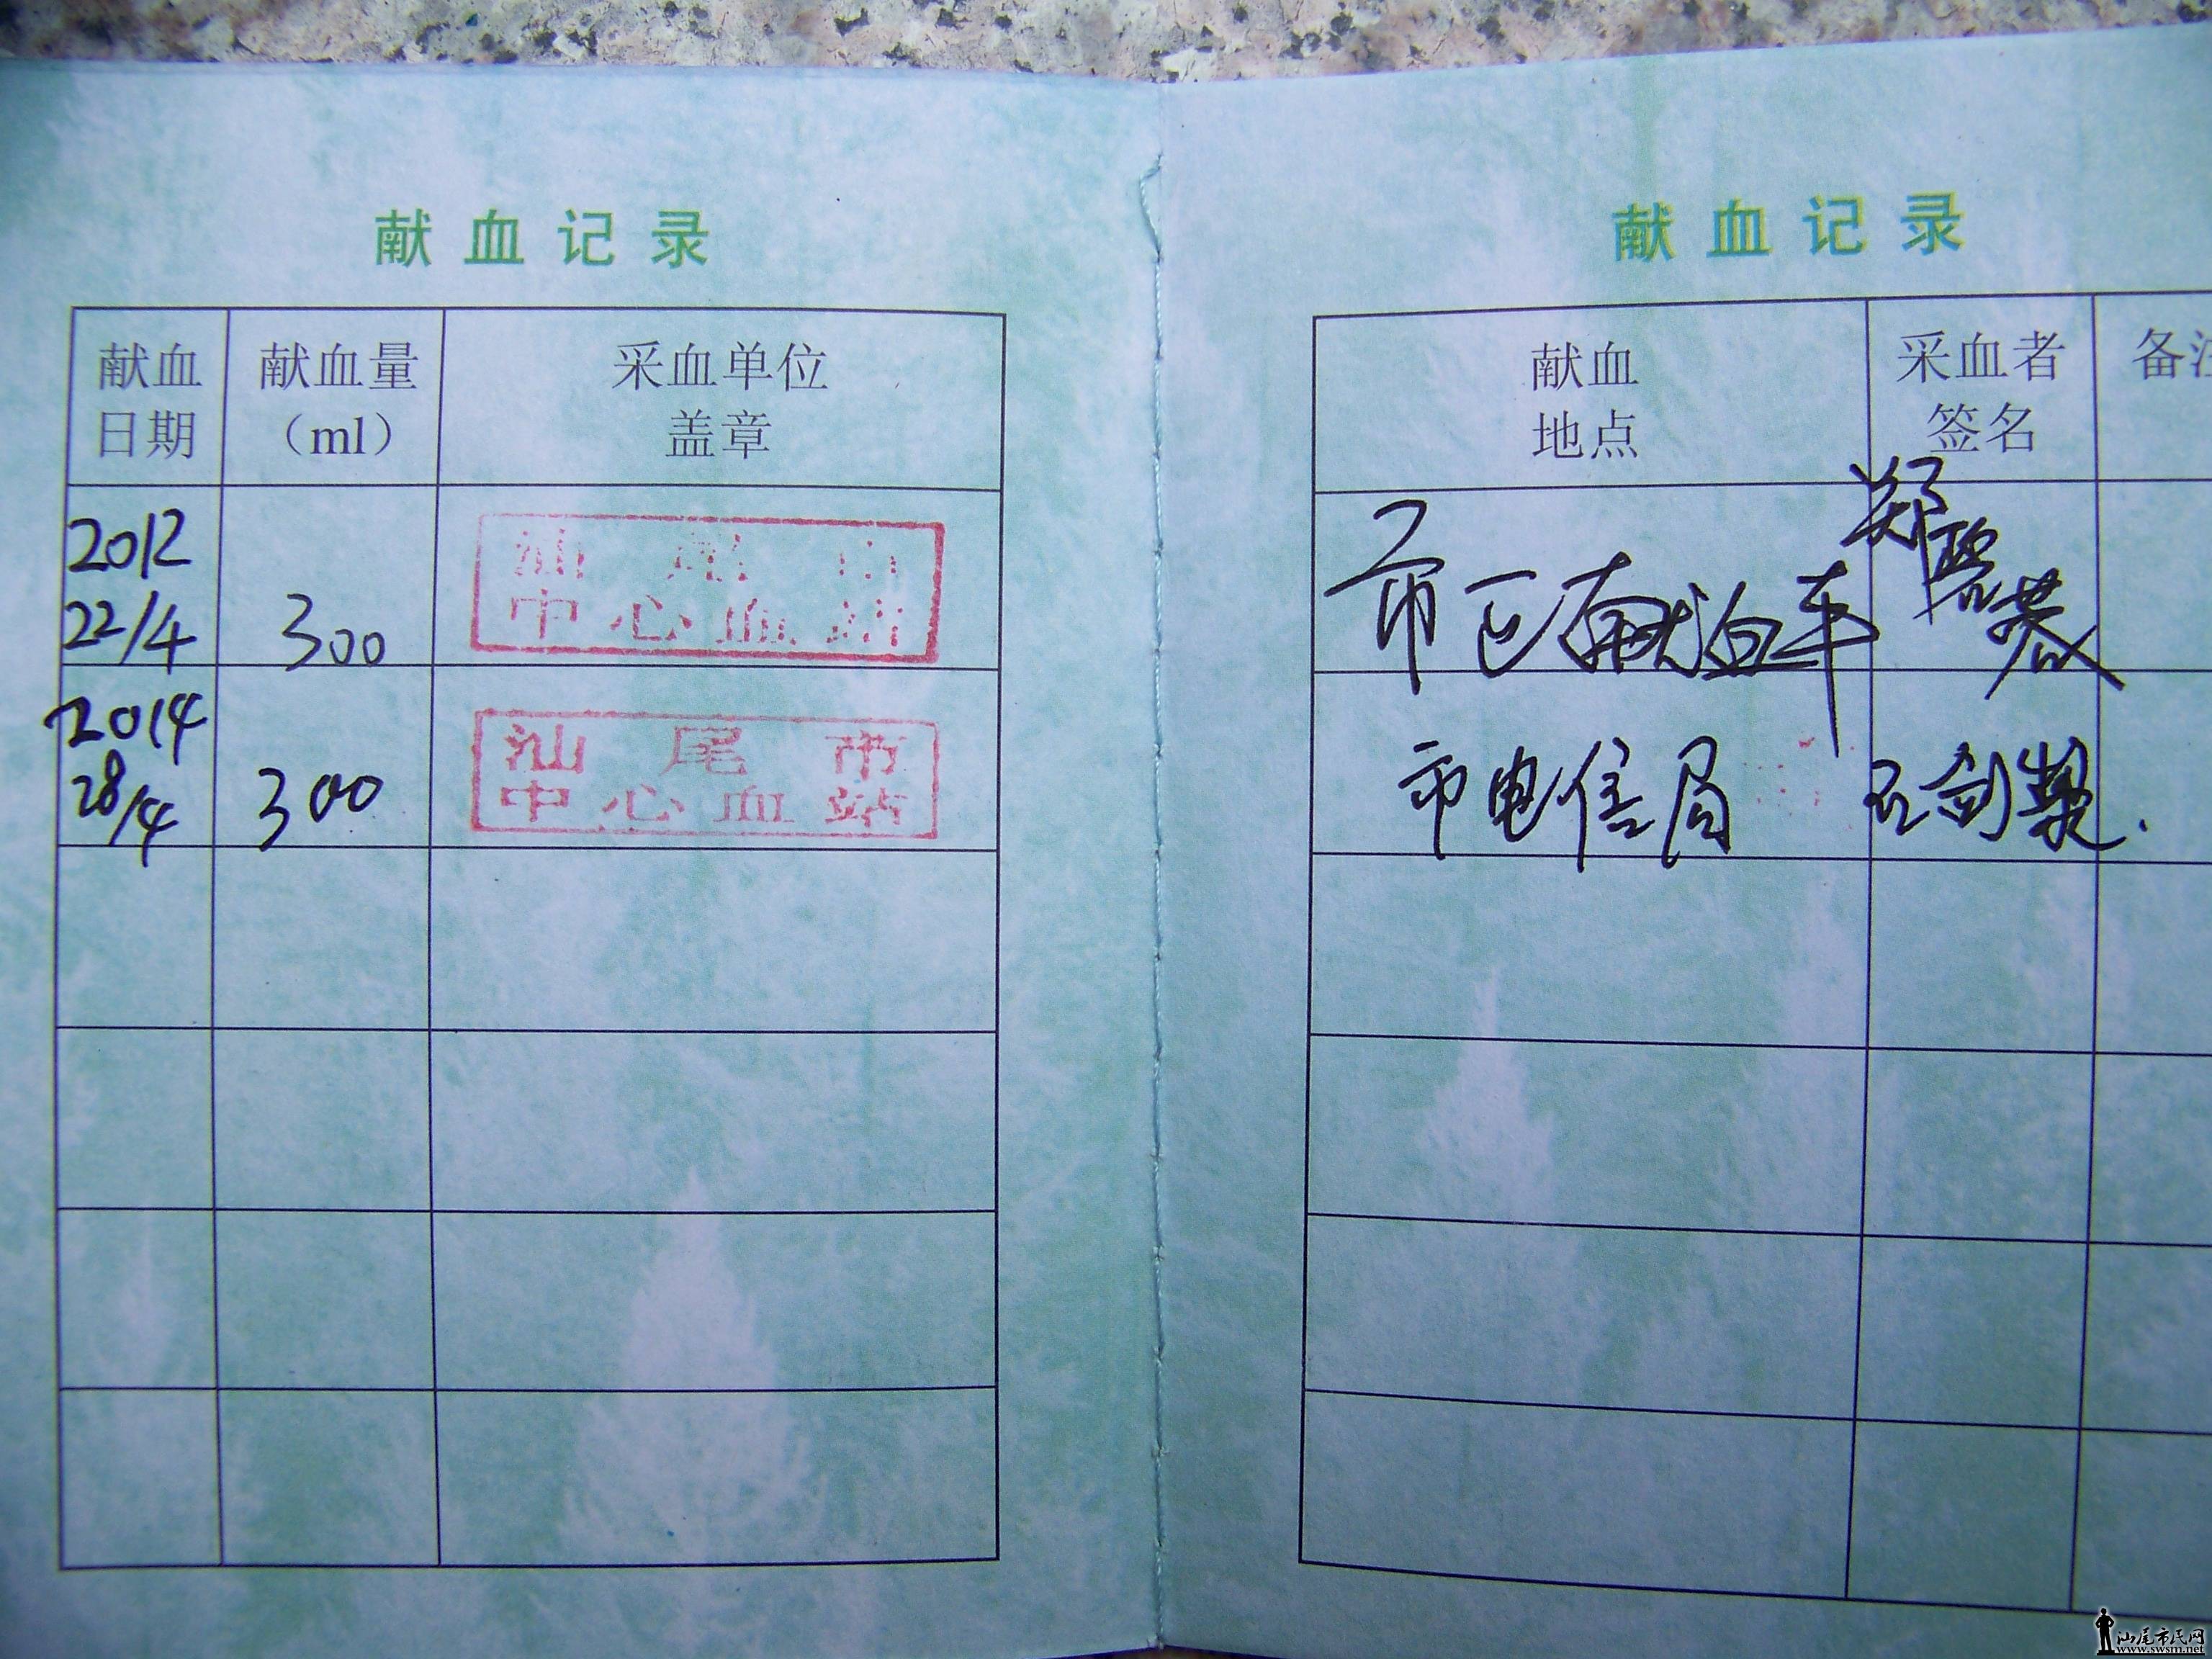 献血记录
献血日期
献血量（ml）
采血单位盖章
2012
22/4
300
汕尾市
中心血站
2014
28/4
300
汕尾市
中心血站
献血记录
献血地点
采血者签名
备注
市区献血车
郑碧
市电信局
剑
汕尾市民网
www.swsm.net